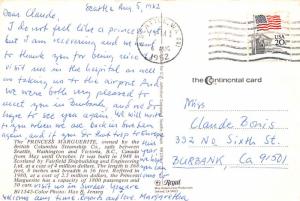 Seattle Aug 5, 1982
Dear Claude,
I do not feel like a princess yet
but I am recovering and want
to thank you for being nice
visit us in the hospital as well
as taking us to the airport. And
we were both very pleased to
meet you in Burbank, and we do
hope to see you again. We will write
to you when we are back in Burbank
again and if you go for that trip to
The PRINCESS MARGUERITE, owned by the
British Columbia Steamship Co., sails between
Seattle, Washington and Victoria, B.C. Canada
from May until October. It was built in 1948 in
Scotland by Fairfield Shipbuilding and Engineering Ltd. at
a cost of 4 million dollars. The length is 368
feet, 8 inches and breadth is 56 feet. Refitted in
1980, at a cost of 2.5 million dollars, the Princess
Marguerite has a capacity of 1800 passengers and
50 cars.
B11542-Color Photo—Max R. Jensen
welcome any time, regards and love Margaretha
SEATTLE, WA
AUG
1982
USA 20c
the Continental card
Miss
Claude Bonis
332 No. Sixth St.
BURBANK, CA 91501